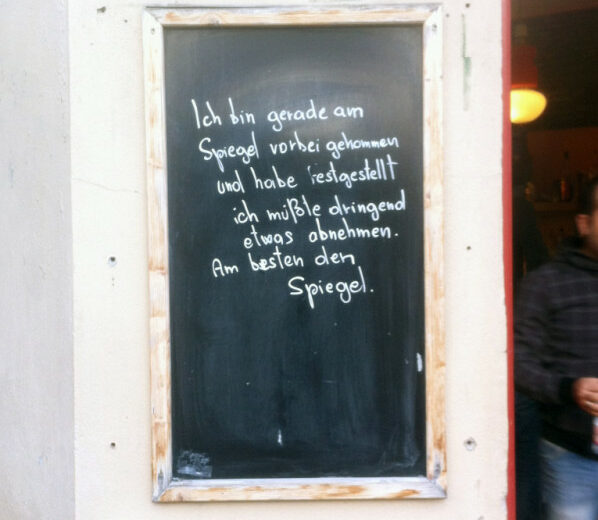 Ich bin gerade am
Spiegel vorbei gekommen
und habe festgestellt
ich müßte dringend
etwas abnehmen.
Am besten den
Spiegel.